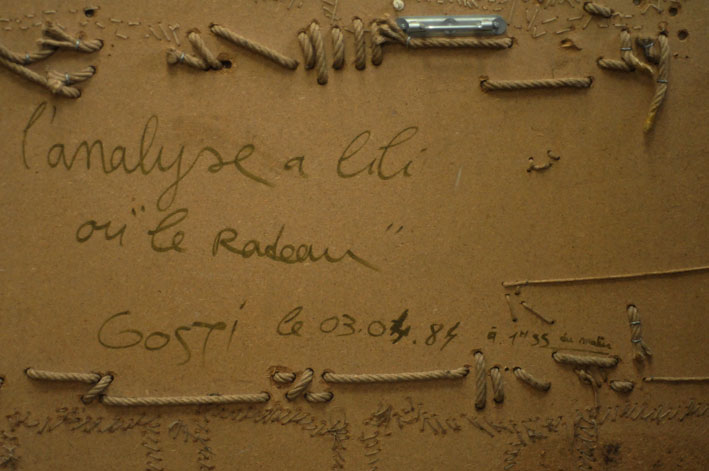 l'analyse a lili
où "le Radeau"
GOSTi le 03.04.84 à 1H35 du matin